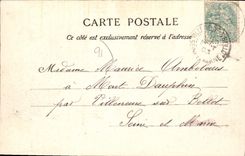 CARTE POSTALE
Ce côté est exclusivement réservé à l'adresse
Madame Maurice
à Mont Dauphin
par Villeneuve sur Bellot
Seine et Marne